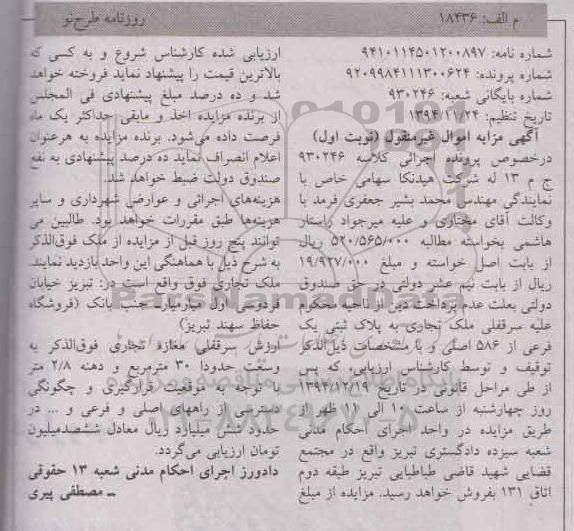 م الف: ۱۸۴۳۶
روزنامه طرح‌نو
شماره نامه: ۹۴۱۰۱۱۴۵۰۱۲۰۰۸۹۷
شماره پرونده: ۹۲۰۹۹۸۴۱۱۱۳۰۰۶۲۴
شماره بایگانی شعبه: ۹۳۰۲۴۶
تاریخ تنظیم: ۱۳۹۴/۱۱/۲۴
آگهی مزایه اموال غیرمنقول (نوبت اول)
درخصوص پرونده اجرائی کلاسه ۹۳۰۲۴۶
ج م ۱۳ له شرکت هیدنکا سهامی خاص با
نمایندگی مهندس محمد بشیر جعفری فرمد با
وکالت آقای مختاری و علیه میرجواد راستار
هاشمی بخواسته مطالبه ۵۲۰/۵۶۵/۰۰۰ ریال
از بابت اصل خواسته و مبلغ ۱۹/۹۲۷/۰۰۰
ریال از بابت نیم عشر دولتی در حق صندوق
دولتی بعلت عدم پرداخت دین از ناحیه محکوم
علیه سرقفلی ملک تجاری به پلاک ثبتی یک
فرعی از ۵۸۶ اصلی و با مشخصات ذیل‌الذکر
توقیف و توسط کارشناس ارزیابی، که پس
از طی مراحل قانونی در تاریخ ۱۳۹۴/۱۲/۱۹
روز چهارشنبه از ساعت ۱۰ الی ۱۱ ظهر از
طریق مزایده در واحد اجرای احکام مدنی
شعبه سیزده دادگستری تبریز واقع در مجتمع
قضایی شهید قاضی طباطبایی تبریز طبقه دوم
اتاق ۱۳۱ بفروش خواهد رسید. مزایده از مبلغ
ارزیابی شده کارشناس شروع و به کسی که
بالاترین قیمت را پیشنهاد نماید فروخته خواهد
شد و ده درصد مبلغ پیشنهادی فی المجلس
از برنده مزایده اخذ و مابقی حداکثر یک ماه
فرصت داده می‌شود. برنده مزایده به هرعنوان
اعلام انصراف نماید ده درصد پیشنهادی به نفع
صندوق دولت ضبط خواهد شد.
هزینه‌های اجرائی و عوارض شهرداری و سایر
هزینه‌ها طبق مقررات خواهد بود. طالبین می
توانند پنج روز قبل از مزایده از ملک فوق‌الذکر
به شرح ذیل با هماهنگی این واحد بازدید نمایند.
ملک تجاری فوق واقع است در: تبریز خیابان
فردوسی اول میارمیار جنب بانک (فروشگاه
حفاظ سهند تبریز)
ارزش سرقفلی مغازه تجاری فوق‌الذکر به
وسعت حدوداً ۳۰ مترمربع و دهنه ۲/۸ متر
با توجه به موقعیت قرارگیری و چگونگی
دسترسی از راههای اصلی و فرعی و ... در
حدود شش میلیارد ریال معادل ششصدمیلیون
تومان ارزیابی می‌گردد.
دادورز اجرای احکام مدنی شعبه ۱۳ حقوقی
ـ مصطفی پیری
ParsNamadData